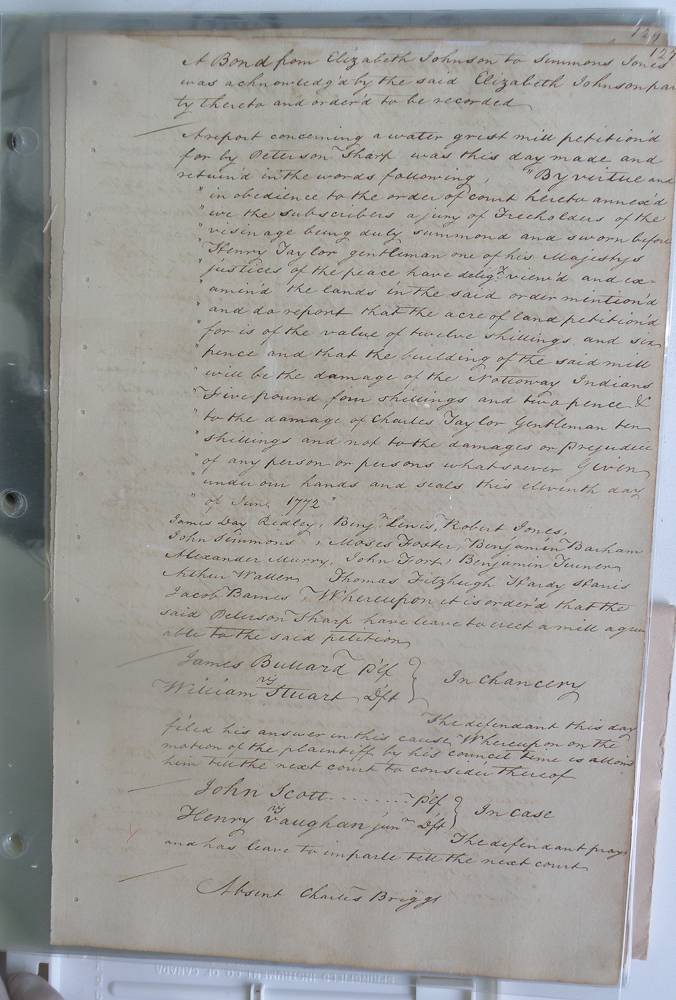 129
127
A Bond from Elizabeth Johnson to Simmons Jones
was acknowledg'd by the said Elizabeth Johnson par
ty thereto and order'd to be recorded
A report concerning a water grist mill petition'd
for by Peterson Tharp was this day made and
return'd in the words following, "By virtue and
" in obedience to the order of court hereto annex'd
" we the subscribers a jury of Freeholders of the
" visinage being duly summond and sworn before
" Henry Taylor gentleman one of his Majestys
" justices of the peace have delig.ᵗ view'd and ex-
" amin'd the lands in the said order mention'd
" and do report that the acre of land petition'd
" for is of the value of twelve shillings and six
" pence and that the building of the said mill
" will be the damage of the Nottoway Indians
" Five pound four shillings and two pence &
" to the damage of Charles Taylor Gentleman ten
" shillings and not to the damages or prejudice
" of any person or persons whatsoever Given
" under our hands and seals this eleventh day
" of June 1772"
James Day Ridley, Benjᵃ Lewis, Robert Jones,
John Simmons, Moses Foster, Benjamin Barham
Alexander Murry, John Fort, Benjamin Turner
Arthur Waller Thomas Fitzhugh Hardy
Jacob Barnes Whereupon it is order'd that the
said Peterson Tharp have leave to erect a mill agree
able to the said petition
James Bullard P'lf
vs
William Stuart Dft } In Chancery
The defendant this day
filed his answer in this cause Whereupon on the
motion of the plaintiff by his council time is allow'd
him till the next court to consider thereof
John Scott ........ P'lf
vs
Henry Vaughan junʳ Dft } In Case
The defendant prays
and has leave to imparle till the next court
Absent Charles Briggs